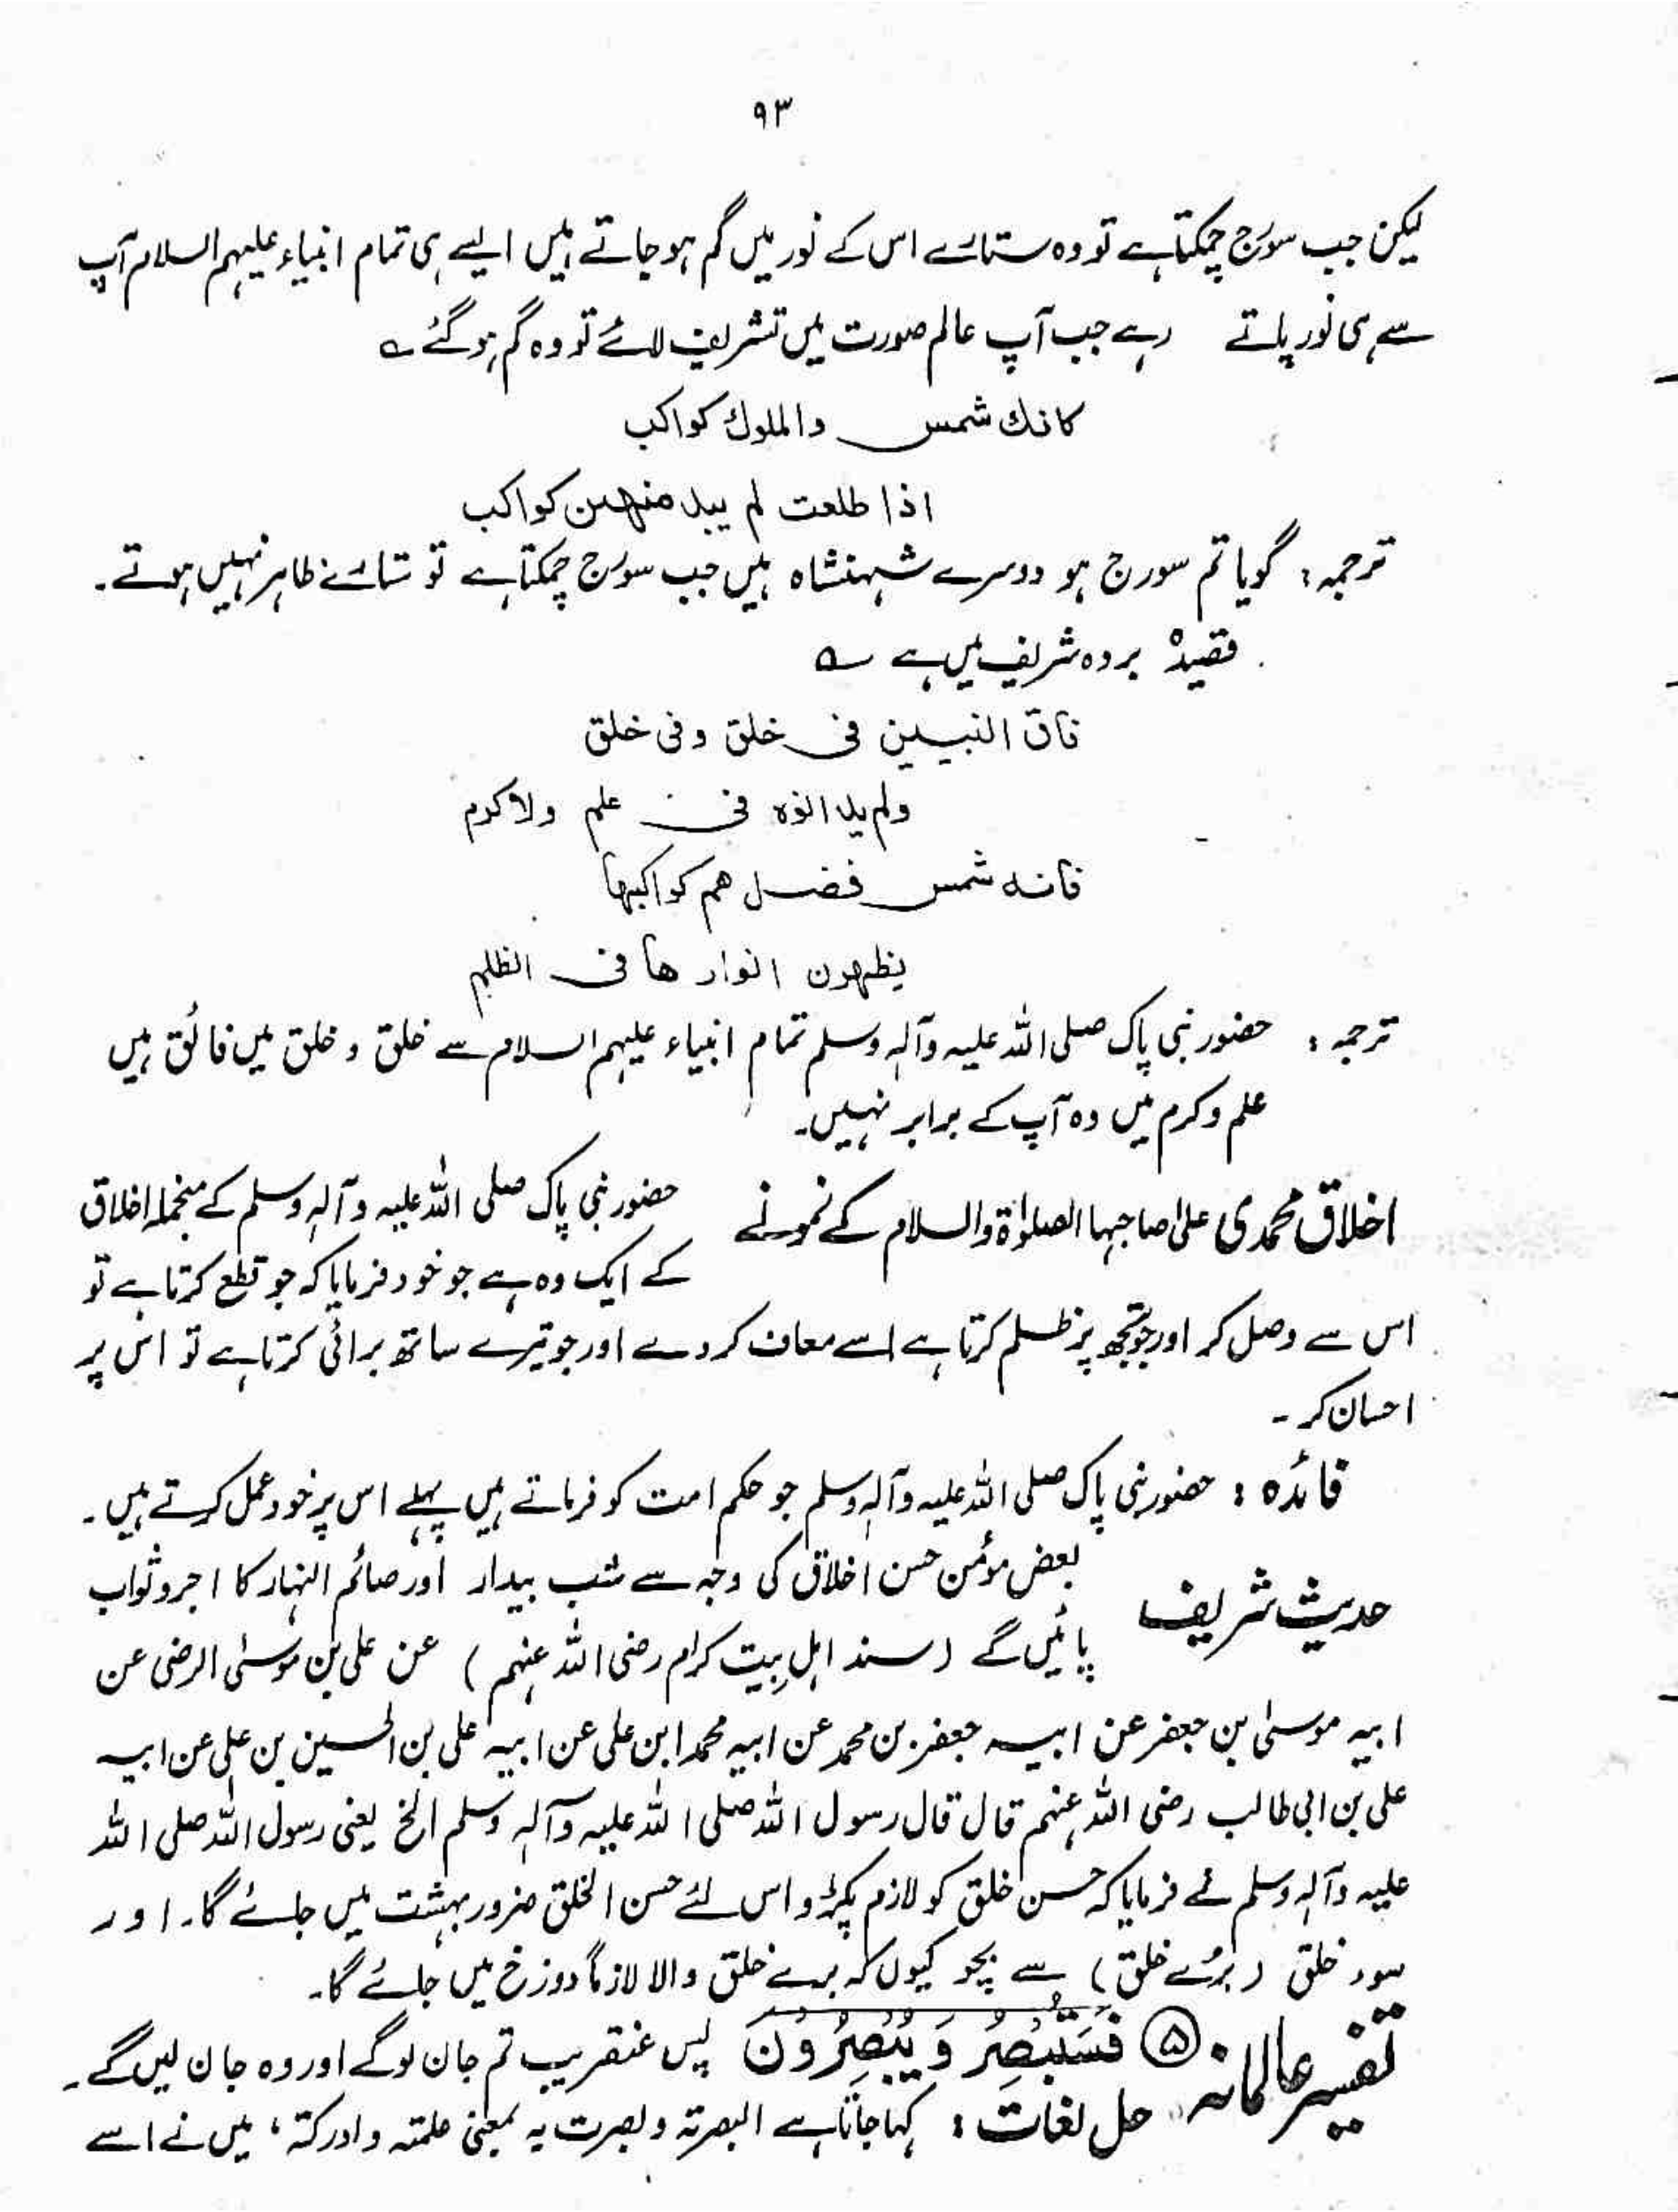 ۹۳
لیکن جب سورج چمکتا ہے تو وہ ستارے اس کے نور میں گم ہو جاتے ہیں ایسے ہی تمام انبیاء علیہم السلام آپ
سے ہی نور پاتے رہے جب آپ عالم صورت میں تشریف لائے تو وہ گم ہو گئے ؎
کانك شمس والملوك کواکب
اذا طلعت لم یبد منھن کواکب
ترجمہ : گویا تم سورج ہو دوسرے شہنشاہ ہیں جب سورج چمکتا ہے تو ستارے ظاہر نہیں ہوتے۔
قصیدۂ بردہ شریف میں ہے ؎
فاق النبیین فی خلق وفی خلق
ولم یدانوہ فی علم ولا کرم
فانہ شمس فضل ھم کواکبھا
یظھرن انوارھا فی الظلم
ترجمہ : حضور نبی پاک صلی اللہ علیہ وآلہٖ وسلم تمام انبیاء علیہم السلام سے خلق و خلق میں فائق ہیں
علم و کرم میں وہ آپ کے برابر نہیں۔
اخلاق محمدی علیٰ صاحبہا الصلوٰۃ والسلام کے نمونے حضور نبی پاک صلی اللہ علیہ وآلہٖ وسلم کے منجملہ اخلاق
کے ایک وہ ہے جو خود فرمایا کہ جو قطع کرتا ہے تو
اس سے وصل کر اور جو تجھ پر ظلم کرتا ہے اسے معاف کر دے اور جو تیرے ساتھ برائی کرتا ہے تو اس پر
احسان کر ۔
فائدہ : حضور نبی پاک صلی اللہ علیہ وآلہٖ وسلم جو حکم امت کو فرماتے ہیں پہلے اس پر خود عمل کرتے ہیں ۔
حدیث شریف بعض مؤمن حسن اخلاق کی وجہ سے شب بیدار اور صائم النہار کا اجر و ثواب
پائیں گے (سند اہل بیت کرام رضی اللہ عنہم) عن علی بن موسیٰ الرضی عن
ابیہ موسیٰ بن جعفر عن ابیہ جعفر بن محمد عن ابیہ محمد ابن علی عن ابیہ علی بن الحسین بن علی عن ابیہ
علی بن ابی طالب رضی اللہ عنہم قال قال رسول اللہ صلی اللہ علیہ وآلہٖ وسلم الخ یعنی رسول اللہ صلی اللہ
علیہ وآلہٖ وسلم نے فرمایا کہ حسن خلق کو لازم پکڑو اس لئے حسن الخلق ضرور بہشت میں جائے گا۔ اور
سوء خلق (بُرے خلق) سے بچو کیوں کہ برے خلق والا لازماً دوزخ میں جائے گا۔
تفسیر عالمانہ ⑤ فَسَتُبْصِرُ وَ يُبْصِرُوْنَ پس عنقریب تم جان لوگے اور وہ جان لیں گے۔
حل لغات : کہا جاتا ہے البصرتہ وبصرت بہ بمعنی علمتہ وادرکتہ ، میں نے اسے